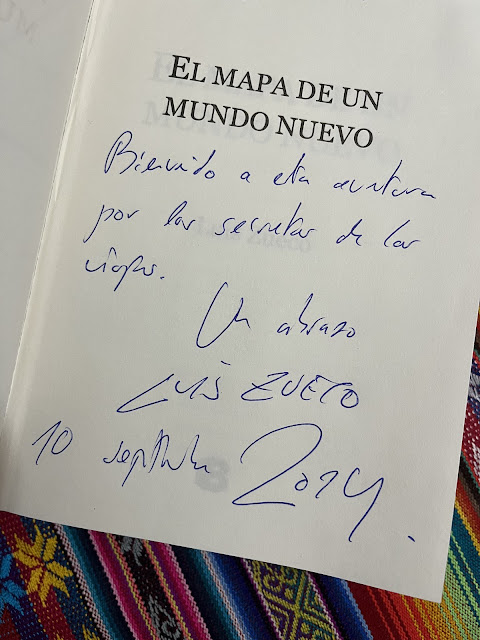 EL MAPA DE UN
MUNDO NUEVO
Bienvenido a esta aventura
por los secretos de los
viajes.
Un abrazo
LUIS ZUECO
10 septiembre 2024.